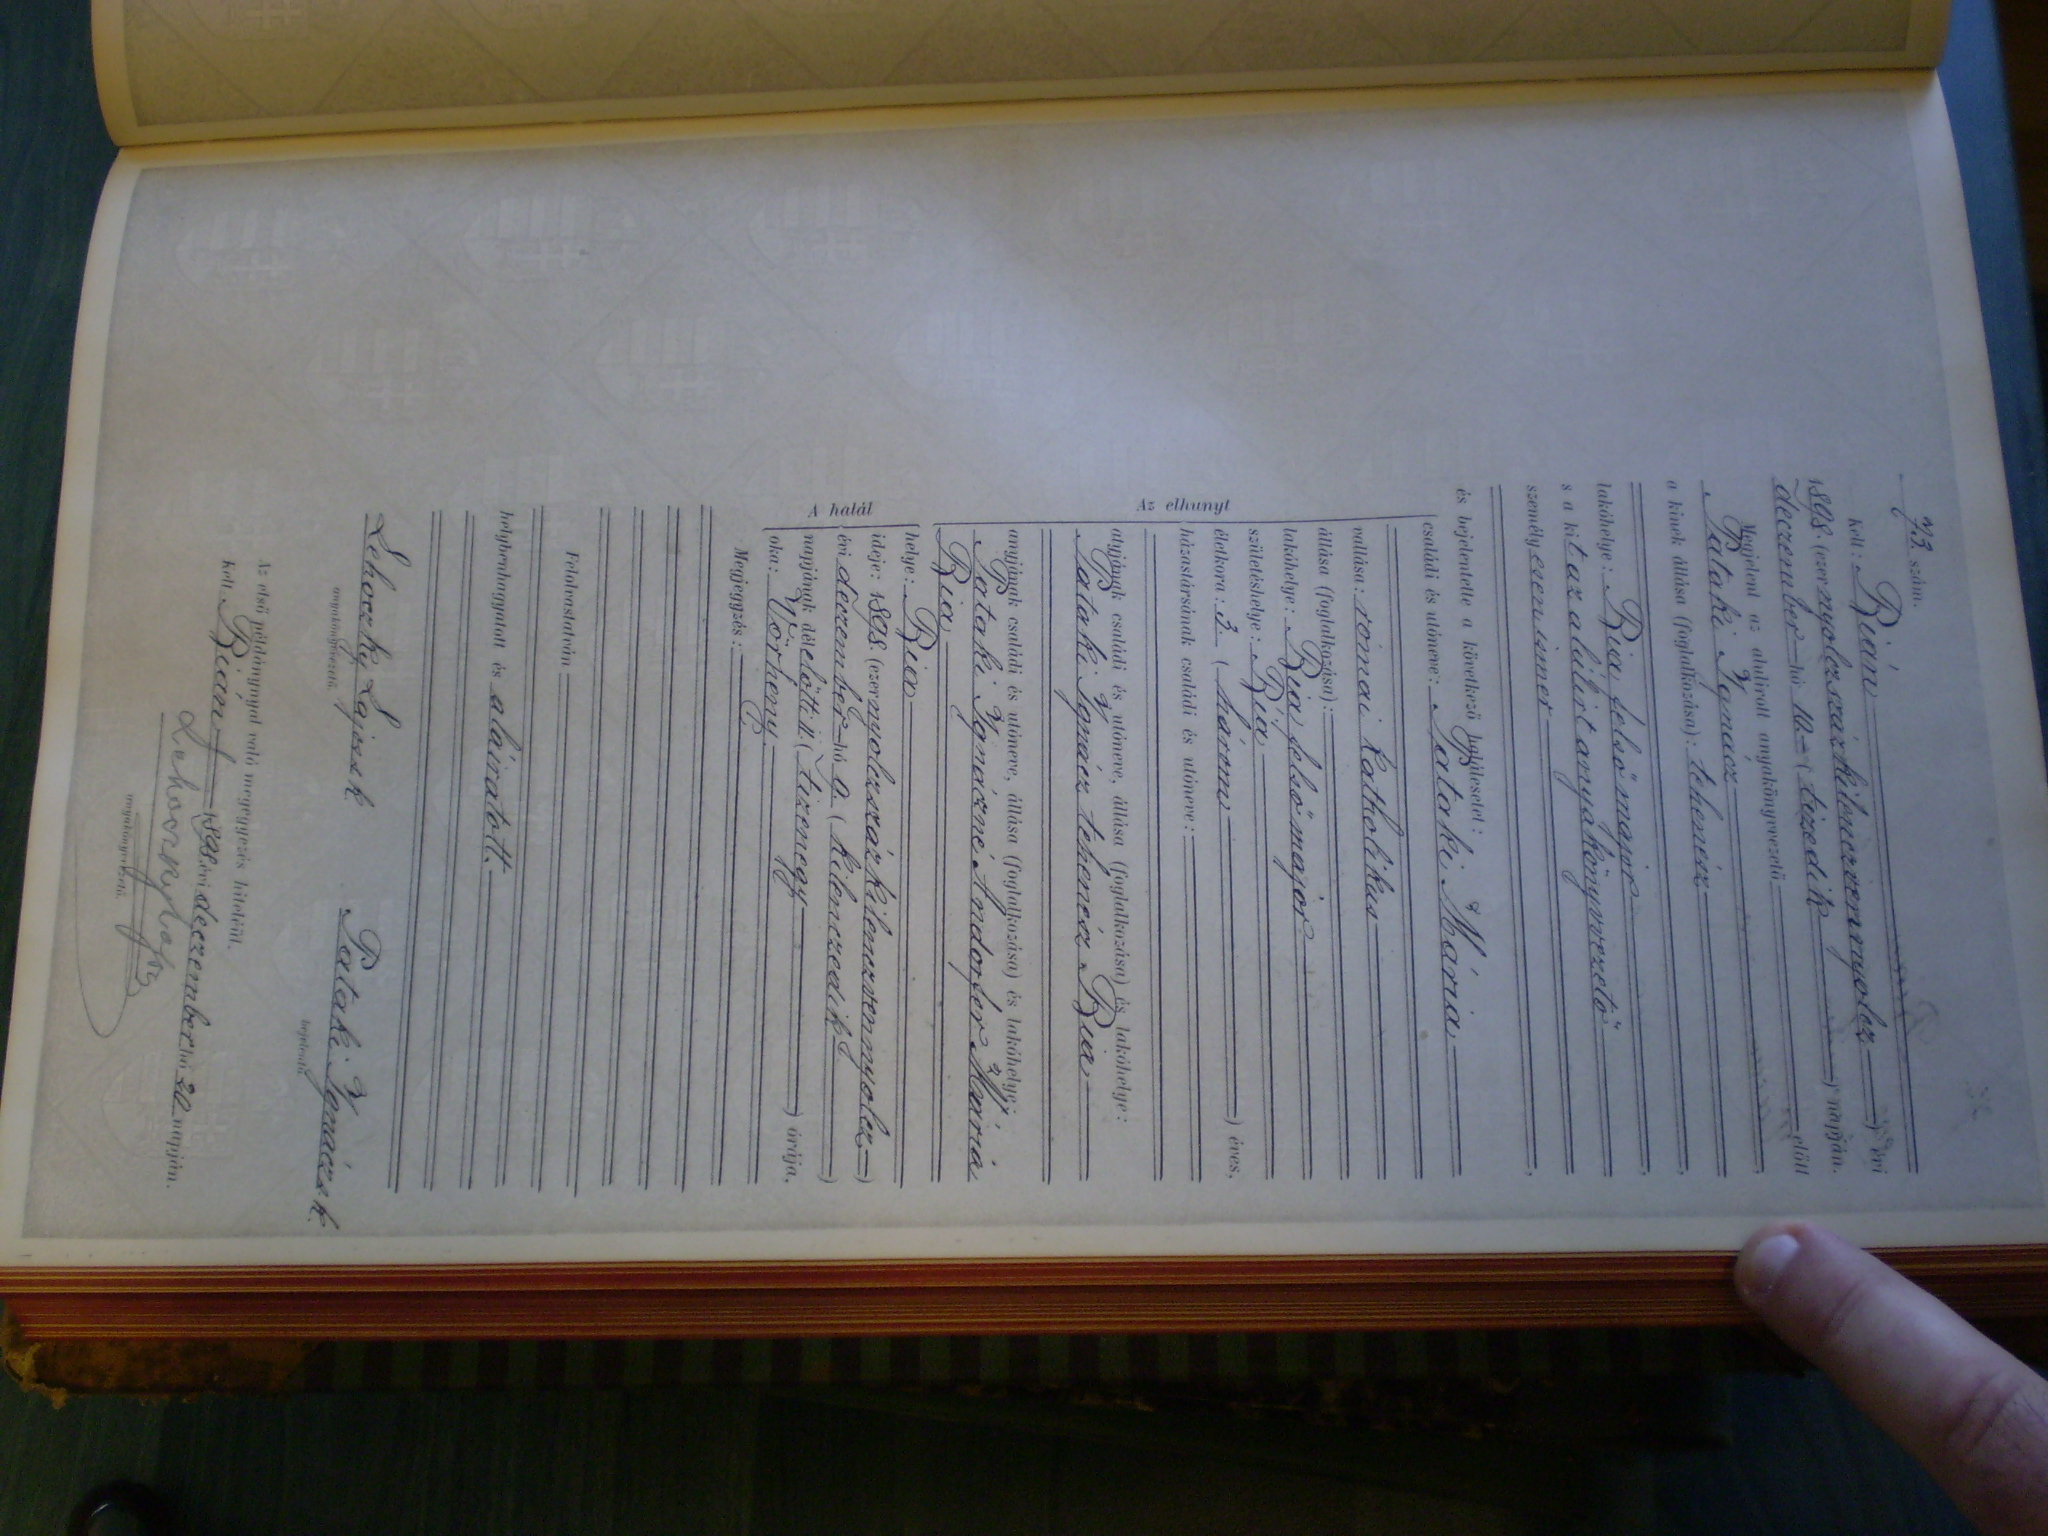 73. szám.
Kelt: Bián 
1898. (ezernyolczszázkilenczvennyolcz) évi
deczember hó 10 (tizedik) napján.
Megjelent az alulirott anyakönyvvezető előtt
Pataki Ignácz
a kinek állása (foglalkozása): tehenész
lakóhelye: Bia felső major
s a kit az alulirt anyakönyvvezető
személyesen ismer
és bejelentette a következő halálesetet:
családi és utóneve: Pataki Mária
vallása: római katholikus
állása (foglalkozása):
lakóhelye: Bia felső major
születéshelye: Bia
életkora: 3. (három) éves,
házastársának családi és utóneve:
Az elhunyt
atyjának családi és utóneve, állása (foglalkozása) és lakóhelye:
Pataki Ignácz tehenész Bia
anyjának családi és utóneve, állása (foglalkozása) és lakóhelye:
Pataki Ignáczné Andorfer Mária
Bia
A halál
helye: Bia
ideje: 1898. (ezernyolczszázkilenczvennyolcz)
évi deczember hó 9. (kilenczedik)
napjának délelőtti 11 (tizenegy) órája,
oka: Vörheny
Megjegyzés:
Felolvastatván
helybenhagyatott és aláiratott.
Lehoczky Lajos sk.
anyakönyvvezető.
Pataki Ignácz sk.
bejelentő.
Az első példánynyal való megegyezés hiteléül.
Kelt: Bián 1898. évi deczember hó 20 napján.
Lehoczky Lajos
anyakönyvvezető.